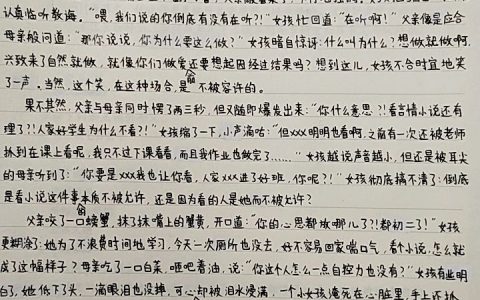 认真临听教诲。“喂，我们说的你倒底有没有在听？！”女孩忙回道：“在听啊！”父亲像是应合
母亲般问道：“那你说说，你为什么要这么做？”女孩暗自惊讶：什么叫为什么？想做就做啊，
兴致来了自然就做，就像你们做爱还要想起因经过结果吗？想到这儿，女孩不合时宜地笑
了一声。当然，这个笑，在这种场合，是不被容许的。
果不其然，父亲与母亲同时愣了两三秒，但又随即爆发出来：“你什么意思？！看言情小说还有
理了？！人家好学生为什么不看？！”女孩缩了一下，小声滴咕：“但xxx明明也看啊，之前有一次还被老师
抓到在课上看呢，我只不过下课看看，而且我作业也做完了……”女孩越说声音越小，但还是被耳尖
的母亲听到了：“你要是xxx我也让你看，人家xxx进了好班，你呢？！”女孩彻底搞不清了：倒底
是看小说这件事本质不被允许，还是因为看的人是她而不被允许？
父亲咬了一口螃蟹，抹了抹嘴上的蟹黄，开口道：“你的心思都放哪儿了？！都初二了！”女孩
更糊涂了：她为了不浪费时间地学习，今天一次厕所也没去，好不容易回家喘口气，看个小说，怎么就
成了这幅样子？母亲吃了一口白菜，咂吧着油，说：“你这个人怎么一点自控力也没有？”女孩有些明
白了，她低下了头，一滴眼泪也没掉，可心却被泪水浸满，一个小女孩淹死在心脏里，手上还